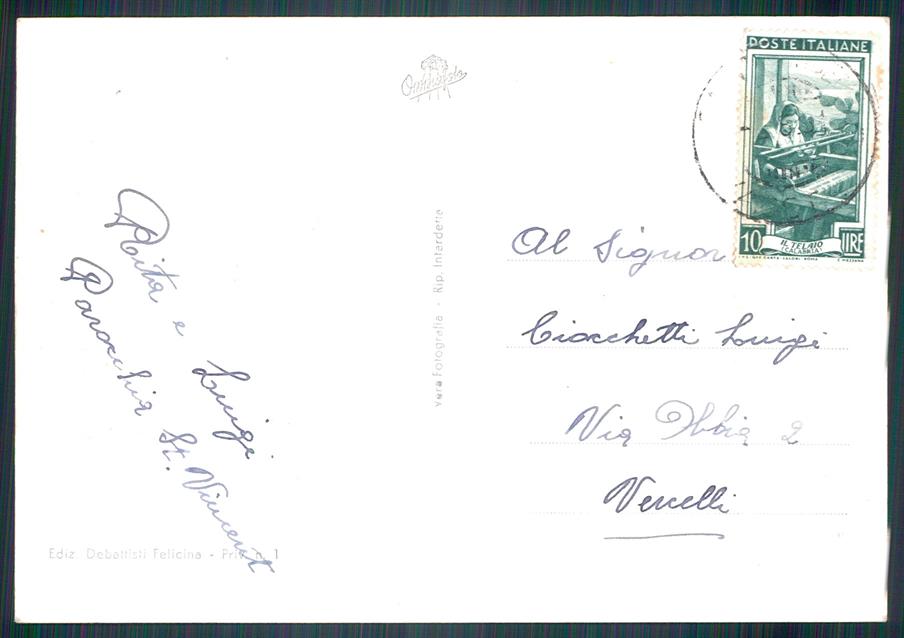 Rita e Luigi
Parocchia St. Vincent
Ediz. Debattisti Felicina - Priv. n. 1
Vera Fotografia - Rip. Interdette
POSTE ITALIANE
10 LIRE
IL TELAIO
(CALABRIA)
Al Signor
Ciocchetti Luigi
Via 2
Vercelli